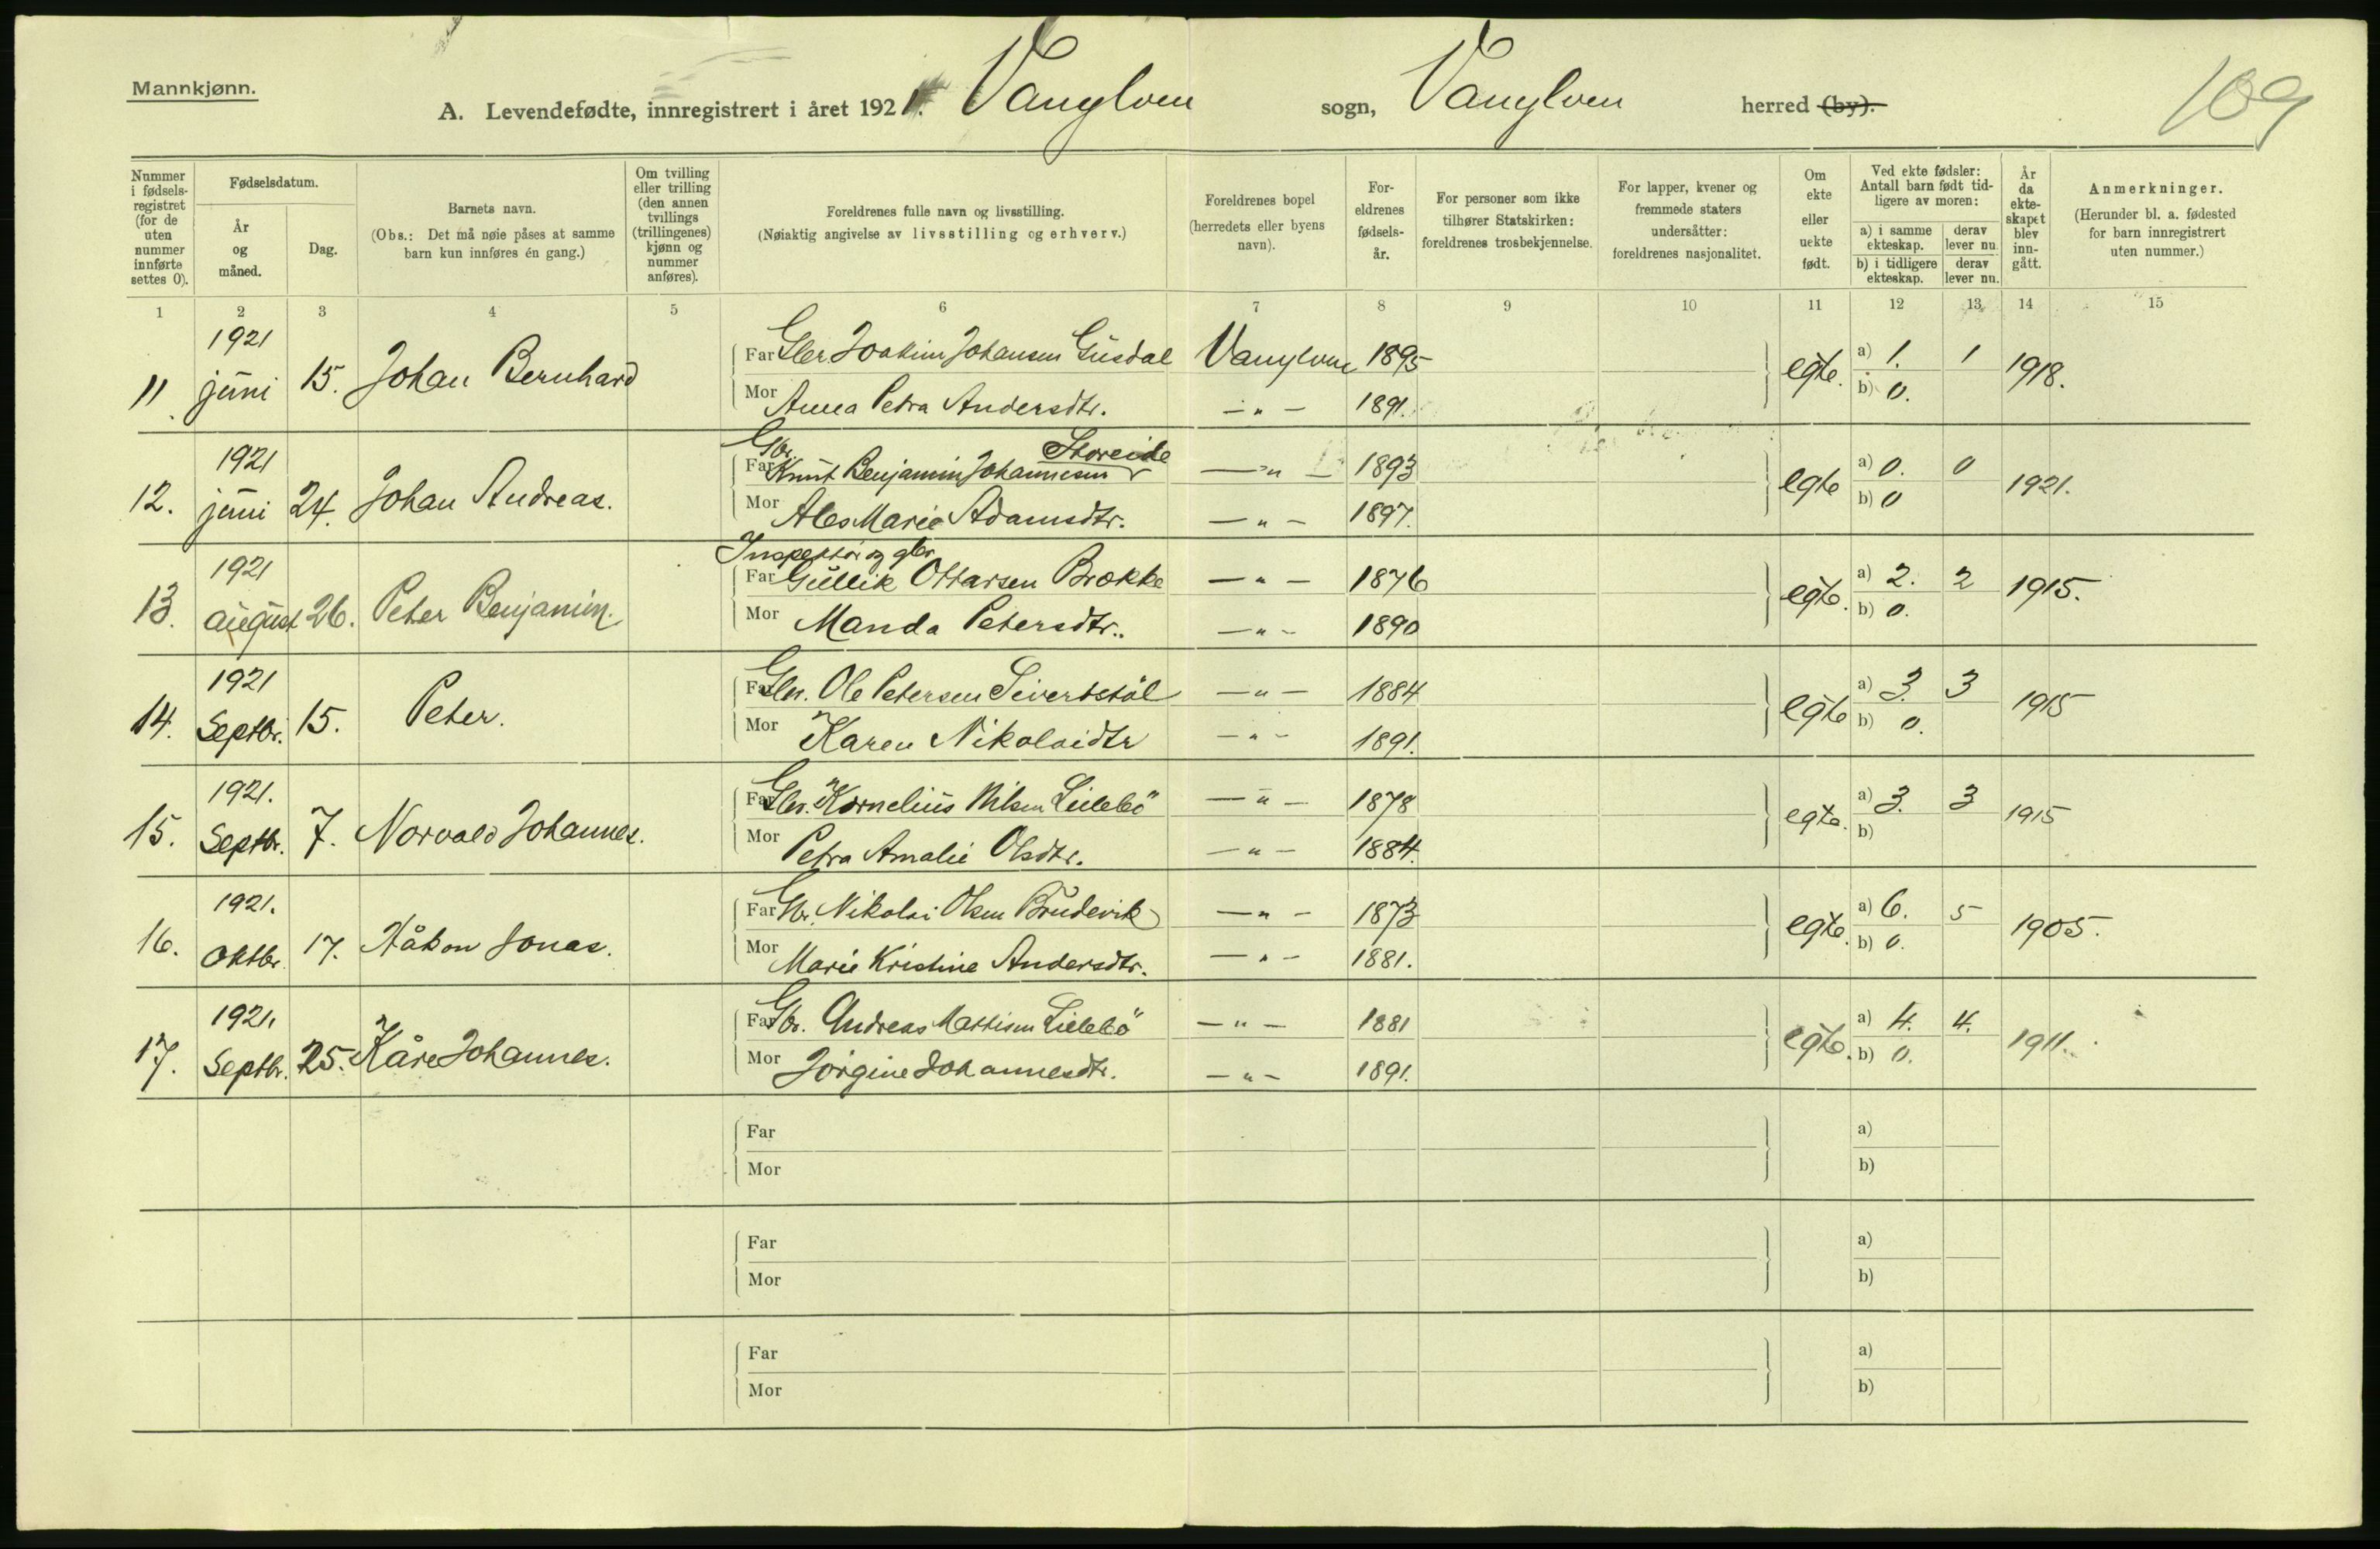 Mannkjønn.
A. Levendefødte, innregistrert i året 1921. Vanylven sogn, Vanylven herred (by).
109
Nummer i fødsels-registret (for de uten nummer innførte settes 0).
Fødselsdatum.
År og måned.
Dag.
Barnets navn.
(Obs.: Det må nøie påses at samme barn kun innføres én gang.)
Om tvilling eller trilling (den annen tvillings (trillingenes) kjønn og nummer anføres).
Foreldrenes fulle navn og livsstilling.
(Nøiaktig angivelse av livsstilling og erhverv.)
Foreldrenes bopel (herredets eller byens navn).
For-eldrenes fødsels-år.
For personer som ikke tilhører Statskirken: foreldrenes trosbekjennelse.
For lapper, kvener og fremmede staters undersåtter: foreldrenes nasjonalitet.
Om ekte eller uekte født.
Ved ekte fødsler: Antall barn født tid-ligere av moren:
a) i samme ekteskap. derav lever nu.
b) i tidligere ekteskap. derav lever nu.
År da ekte-skapet blev inn-gått.
Anmerkninger.
(Herunder bl. a. fødested for barn innregistrert uten nummer.)
1 2 3 4 5 6 7 8 9 10 11 12 13 14 15
11 1921 juni 15. Johan Bernhard Far Gbr Joakim Johansen Gusdal Vanylven 1895 egte. a) 1. 1 1918.
Mor Anna Petra Andersdtr. — " — 1891. b) 0.
12. 1921 juni 24. Johan Andreas. Far Gbr. Knut Benjamin Johannesen Storeide — " — 1893 egte a) 0. 0 1921.
Mor Ales Marie Adamsdtr. — " — 1897. b) 0
13. 1921 august 26. Peter Benjamin. Inspektør og gbr. Far Gullik Ottarsen Brokke — " — 1876 egte. a) 2. 2 1915.
Mor Manda Petersdtr. — " — 1890 b) 0.
14. 1921 Septbr. 15. Peter. Far Gbr. Ole Petersen Sivertstøl — " — 1884 egte a) 3. 3 1915
Mor Karen Nikolaidtr — " — 1891. b) 0.
15. 1921. Septbr. 7. Norvald Johannes. Far Gbr. Kornelius Nilsen Lillebö — " — 1878 egte. a) 3. 3 1915
Mor Petra Amalie Olsdtr. — " — 1884. b)
16. 1921. Oktbr. 17. Håkon Jonas. Far Gbr. Nikolai Olsen Brudevik — " — 1873 egte. a) 6. 5 1905.
Mor Marie Kristine Andersdtr. — " — 1881. b) 0.
17. 1921. Septbr. 25. Kåre Johannes. Far Gbr. Andreas Mattisen Lillebö — " — 1881 egte. a) 4. 4. 1911.
Mor Jörgine Johannesdtr. — " — 1891. b) 0.
Far a)
Mor b)
Far a)
Mor b)
Far a)
Mor b)